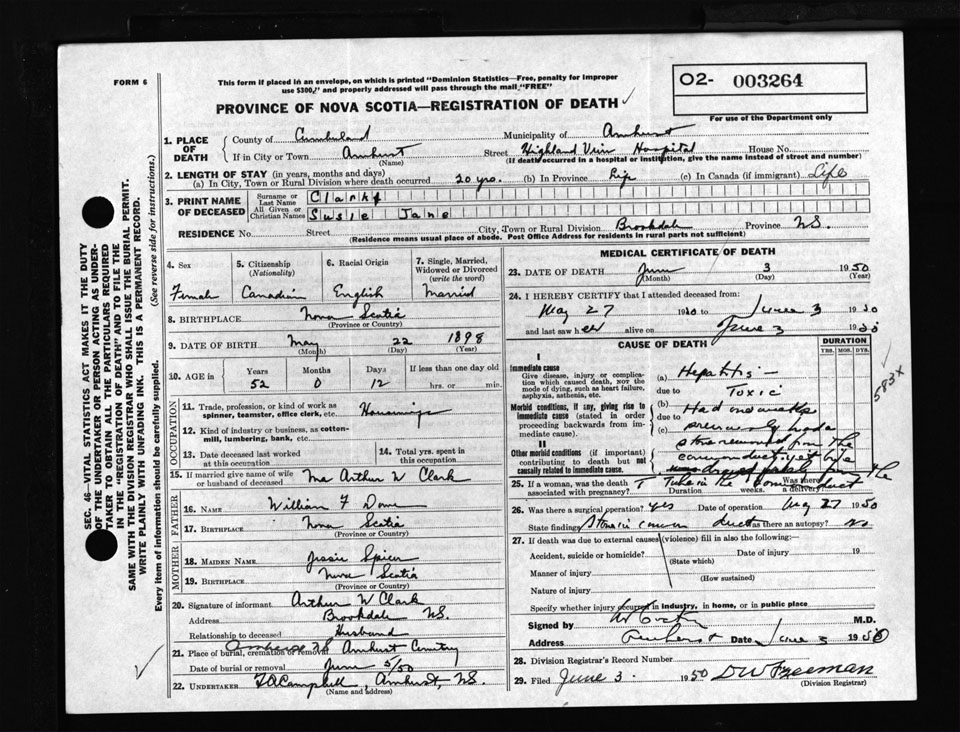 FORM 6
This form if placed in an envelope, on which is printed "Dominion Statistics—Free, penalty for improper
use $300," and properly addressed will pass through the mail "FREE"
O2- 003264
For use of the Department only
PROVINCE OF NOVA SCOTIA—REGISTRATION OF DEATH
SEC. 46—VITAL STATISTICS ACT MAKES IT THE DUTY
OF THE UNDERTAKER OR PERSON ACTING AS UNDER-
TAKER TO OBTAIN ALL THE PARTICULARS REQUIRED
IN THE "REGISTRATION OF DEATH" AND TO FILE THE
SAME WITH THE DIVISION REGISTRAR WHO SHALL ISSUE THE BURIAL PERMIT.
WRITE PLAINLY WITH UNFADING INK. THIS IS A PERMANENT RECORD.
Every item of information should be carefully supplied. (See reverse side for instructions.)
1. PLACE OF DEATH County of Cumberland Municipality of Amherst
If in City or Town Amherst Street Highland View Hospital House No.
(Name) (If death occurred in a hospital or institution, give the name instead of street and number)
2. LENGTH OF STAY (in years, months and days)
(a) In City, Town or Rural Division where death occurred 20 yrs. (b) In Province Life (c) In Canada (if immigrant) Life
3. PRINT NAME OF DECEASED Surname or Last Name Clark
All Given or Christian Names Susie Jane
RESIDENCE No. Street City, Town or Rural Division Brookdale Province N.S.
(Residence means usual place of abode. Post Office Address for residents in rural parts not sufficient)
4. Sex Female
5. Citizenship (Nationality) Canadian
6. Racial Origin English
7. Single, Married, Widowed or Divorced (write the word) Married
8. BIRTHPLACE Nova Scotia
(Province or Country)
9. DATE OF BIRTH May 22 1898
(Month) (Day) (Year)
10. AGE in Years Months Days If less than one day old
52 0 12 hrs. or min.
OCCUPATION
11. Trade, profession, or kind of work as spinner, teamster, office clerk, etc.
12. Kind of industry or business, as cotton-mill, lumbering, bank, etc.
13. Date deceased last worked at this occupation
14. Total yrs. spent in this occupation
15. If married give name of wife or husband of deceased Arthur W Clark
FATHER
16. NAME William F
17. BIRTHPLACE Nova Scotia
(Province or Country)
MOTHER
18. MAIDEN NAME Jessie Spicer
19. BIRTHPLACE Nova Scotia
(Province or Country)
20. Signature of informant Arthur W Clark
Address Brookdale N.S.
Relationship to deceased Husband
21. Place of burial, cremation or removal Amherst Cemetery
Date of burial or removal June 5/50
22. UNDERTAKER Campbell, Amherst, N.S.
(Name and address)
MEDICAL CERTIFICATE OF DEATH
23. DATE OF DEATH June 3 1950
(Month) (Day) (Year)
24. I HEREBY CERTIFY that I attended deceased from:
May 27 1950 to June 3 1950
and last saw her alive on June 3 1950
CAUSE OF DEATH
DURATION
YRS. MOS. DYS.
I
Immediate cause
Give disease, injury or complication which caused death, not the mode of dying, such as heart failure, asphyxia, asthenia, etc.
(a) Hepatitis —
due to Toxic
Morbid conditions, if any, giving rise to immediate cause (stated in order proceeding backwards from immediate cause).
(b) Had
due to
(c) previously had a
stone removed from the
common duct
II
Other morbid conditions (if important) contributing to death but not causally related to immediate cause.
from the
583x
25. If a woman, was the death associated with pregnancy? Duration weeks. Was there a delivery?
T Tube in the common duct
26. Was there a surgical operation? yes Date of operation May 27 1950
State findings Stone in common duct Was there an autopsy? No
27. If death was due to external causes (violence) fill in also the following:—
Accident, suicide or homicide? Date of injury 19
(State which)
Manner of injury
(How sustained)
Nature of injury
Specify whether injury occurred in industry, in home, or in public place
Signed by M.D.
Address Amherst Date June 3 1950
28. Division Registrar's Record Number
29. Filed June 3 1950 DW Freeman
(Division Registrar)